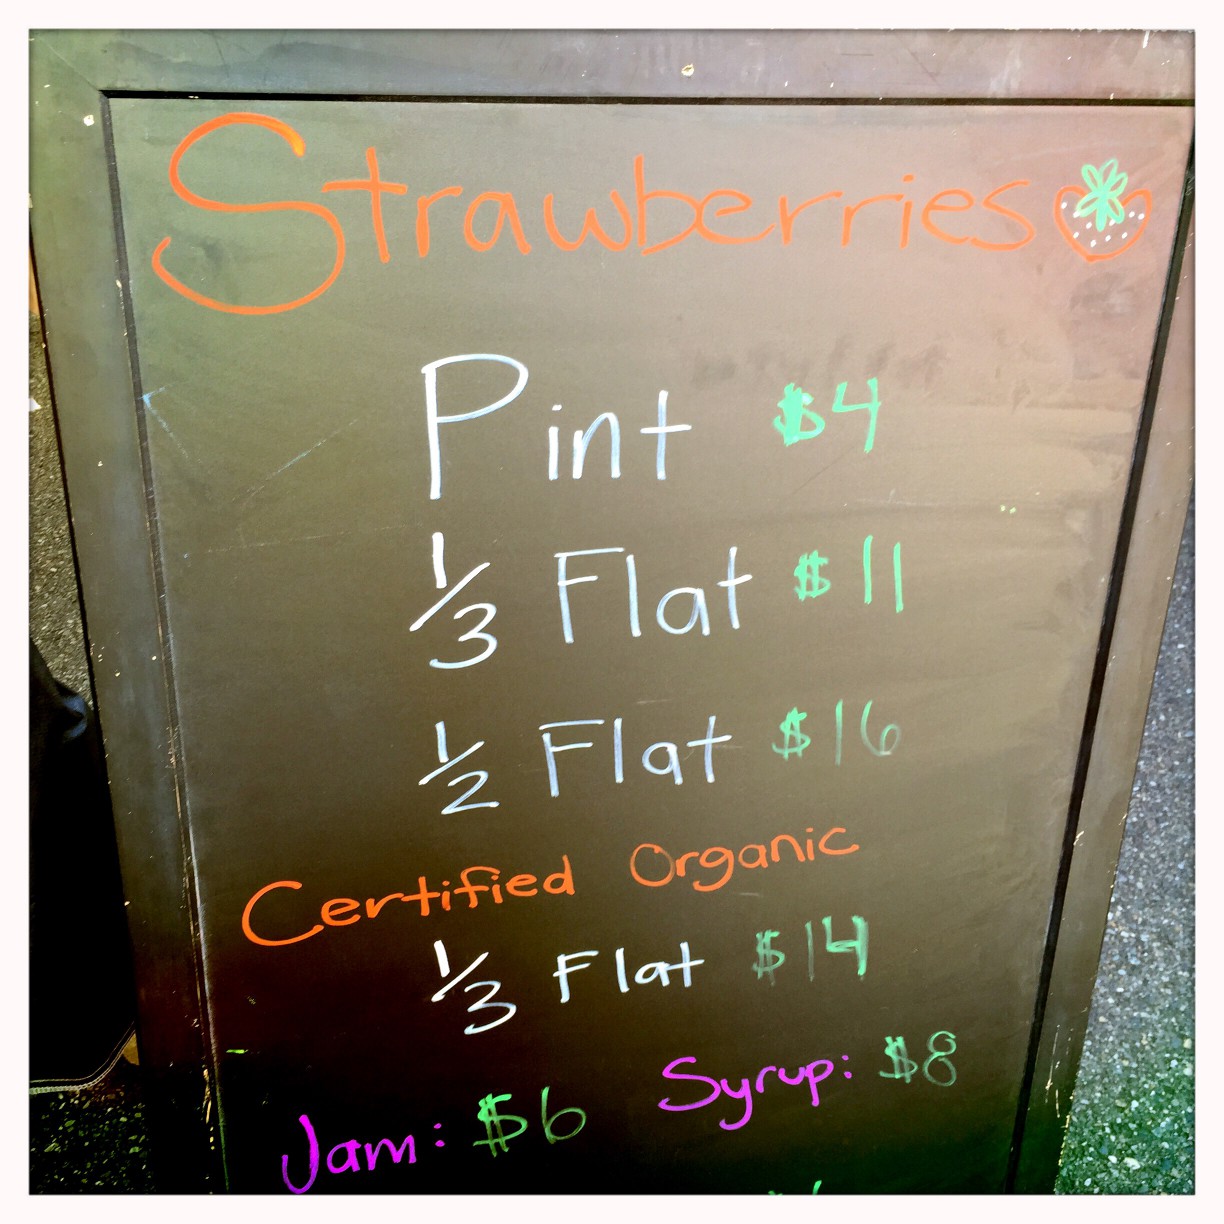 Strawberries
Pint $4
1/3 Flat $11
1/2 Flat $16
Certified Organic
1/3 Flat $14
Syrup: $8
Jam: $6